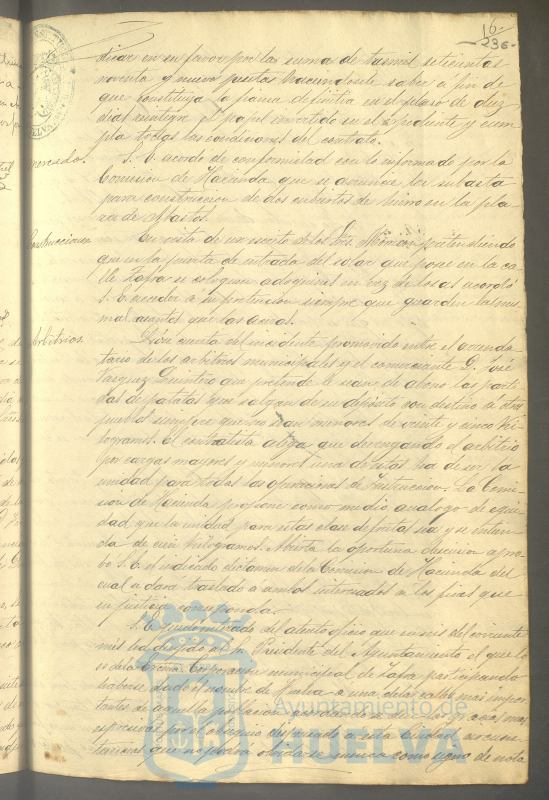 16
236
dicar en su favor por la suma de tres mil setecientas
noventa y nueve pesetas haciendosele saber a fin de
que constituya la fianza definitiva en el plazo de diez
dias reintegre el papel invertido en el expediente y cum
pla todas las condiciones del contrato.
Mercado.
S. E. acordó de conformidad con lo informado por la
Comision de Hacienda que se anuncie la subasta
para construccion de dos cubiertos de hierro en la pla
za de Abastos.
Construcciones
En vista de un escrito de los Sres. pretendiendo
que en la puerta de entrada del solar que posee en la ca
lle Zafra se coloquen adoquines en vez de losas acordó
S. E. acceder a su pretension siempre que guarden las mis
mas rasantes que las aceras.
Arbitrios.
Dióse cuenta del incidente promovido entre el arrenda
tario de los arbitrios municipales y el comerciante D. José
Vazquez Quintero que pretende le sean de abono las parti
das de patatas que salgan de su depósito con destino a otros
pueblos siempre que no sean menores de veinte y cinco Ki
logramos. El contratista alega que devengando el arbitrio
por cargas mayores y menores una de estas ha de ser la
unidad para todas las operaciones de. La Comi
sion de Hacienda propone como medio analogo de equi
dad que la unidad para esta clase de sea y se entien
da de cien kilogramos. Abierta la oportuna discusion apro
bó S. E. el indicado dictamen de la Comision de Hacienda del
cual se dará traslado a ambos interesados a los fines que
en justicia corresponda.
S. E. del atento oficio que en seis del corriente
mes ha dirijido al Sr. Presidente del Ayuntamiento el que lo
es de la Excma. Corporacion municipal de Zafra participando
haberse dado el nombre de Huelva a una de las calles mas impor
tantes de aquella poblacion
expresivas por el obsequio dispensado a esta Ciudad
que no podrá olvidarse nunca como signo de nota
Ayuntamiento de
HUELVA